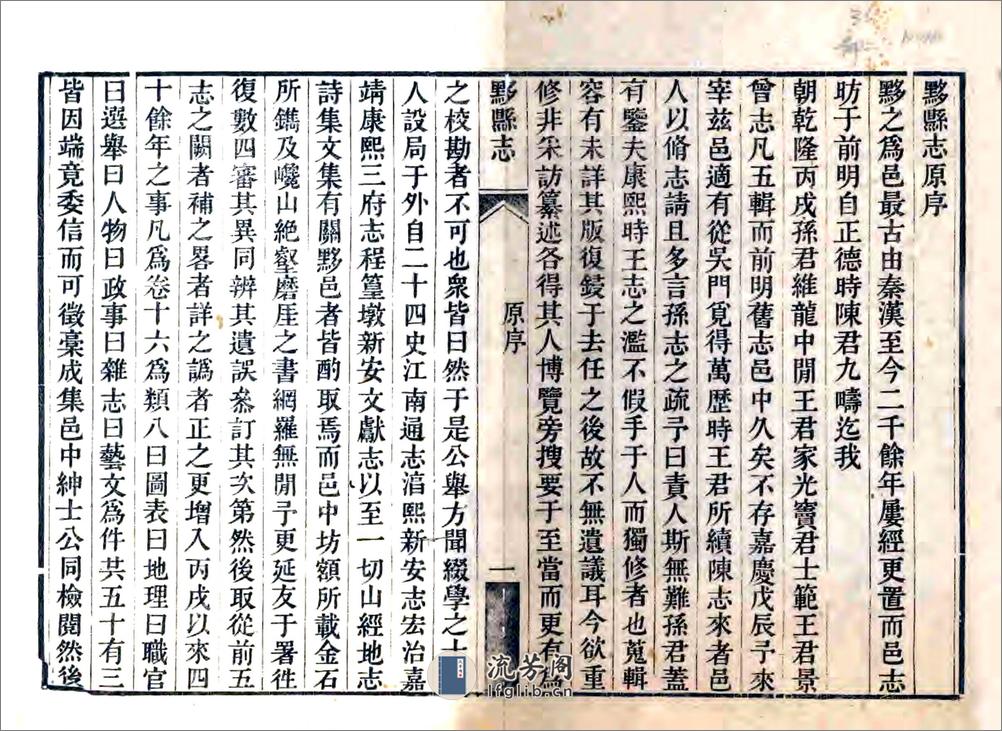 黟縣志原序
黟之爲邑最古由秦漢至今二千餘年屢經更置而邑志
昉于前明自正德時陳君九疇迄我
朝乾隆丙戌孫君維龍中閒王君家光竇君士範王君景
曾志凡五輯而前明舊志邑中久矣不存嘉慶戊辰予來
宰兹邑適有從吳門覓得萬歷時王君所續陳志來者邑
人以脩志請且多言孫志之疏予曰責人斯無難孫君蓋
有鑒夫康熙時王志之濫不假手于人而獨修者也蒐輯
容有未詳其版復鋟于去任之後故不無遺議耳今欲重
修非采訪纂述各得其人博覽旁搜要于至當而更有
黟縣志
原序
一
之校勘者不可也衆皆曰然于是公舉方聞綴學之士
人設局于外自二十四史江南通志滔熙新安志宏治嘉
靖康熙三府志程篁墩新安文獻志以至一切山經地志
詩集文集有關黟邑者皆酌取焉而邑中坊額所載金石
所鐫及巉山絶壑磨厓之書網羅無閒予更延友于署徃
復數四審其異同辨其遺誤叅訂其次第然後取從前五
志之闕者補之畧者詳之譌者正之更增入丙戌以來四
十餘年之事凡爲卷十六爲類八曰圖表曰地理曰職官
曰選舉曰人物曰政事曰雜志曰藝文爲件共五十有三
皆因端竟委信而可徵稾成集邑中紳士公同檢閱然後
流芳阁
lfglib.cn